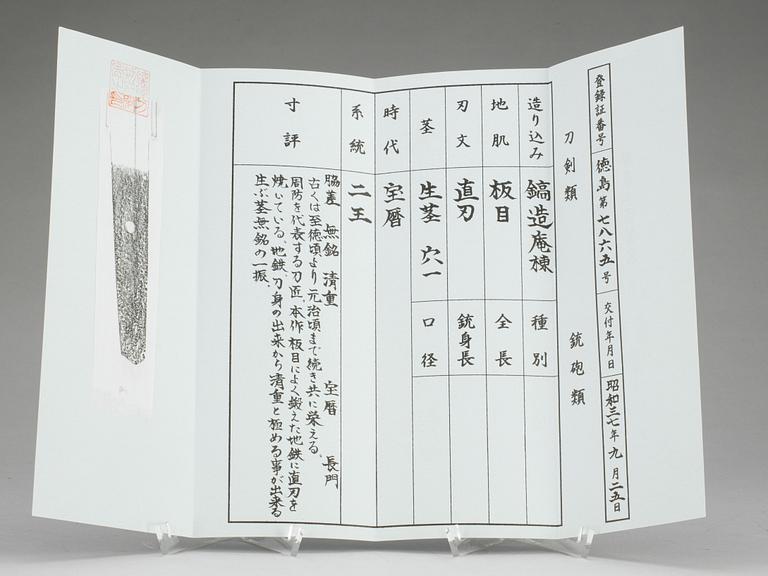 登録証番号 徳島第七八六五号 交付年月日 昭和三七年九月二五日
刀剣類 銃砲類
造り込み 鎬造庵棟 種別
地肌 板目 全長
刃文 直刃 銃身長
茎 生茎 穴一 口径
時代 宝暦
系統 二王
寸評
脇差 無銘 清重 宝暦 長門
古くは至徳頃より元治頃まで続き共に栄える。
周防を代表する刀匠、本作板目によく鍛えた地鉄に直刃を
焼いている。地鉄、刀身の出来から清重と極める事が出来る
生ぶ茎無銘の一振。